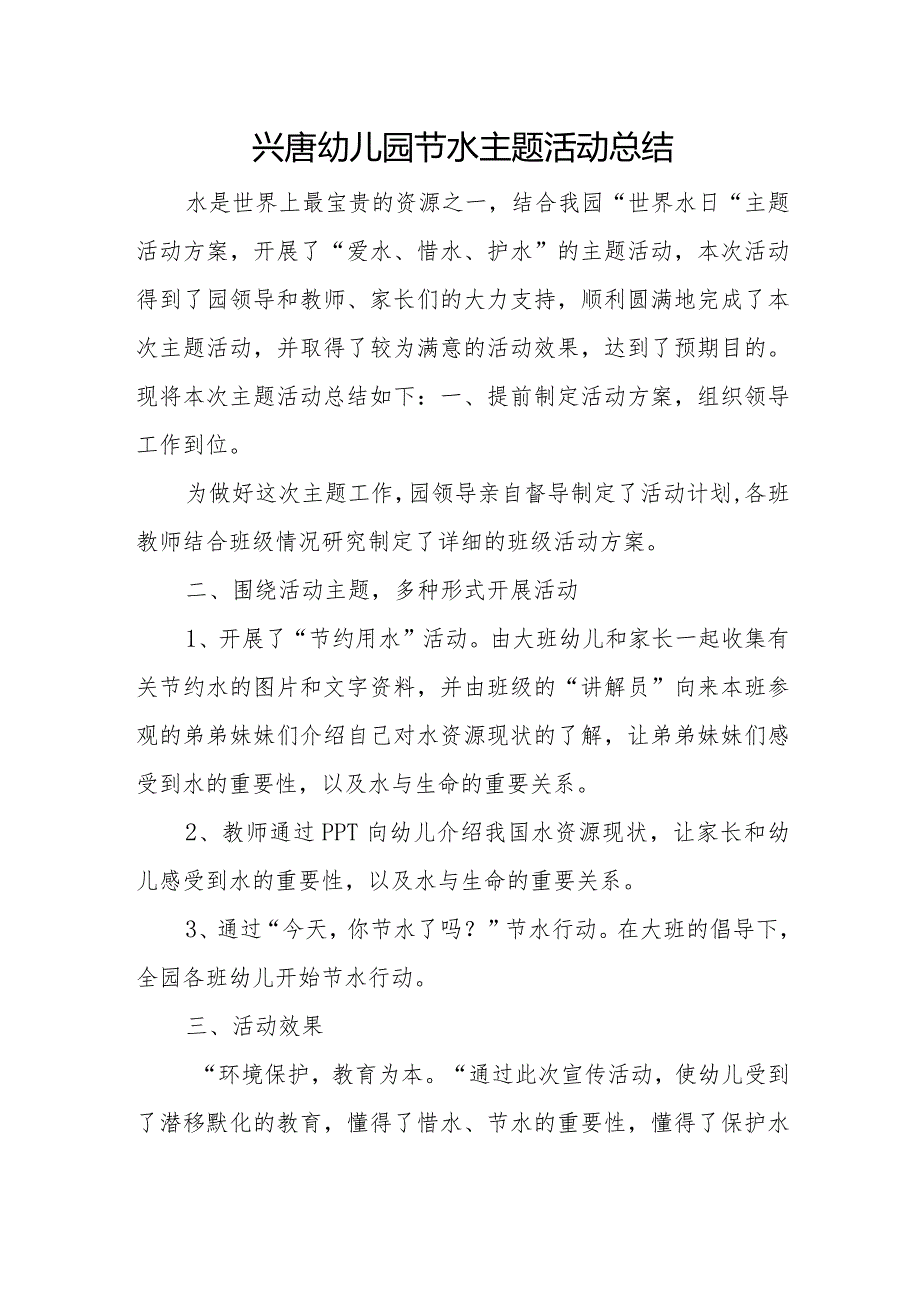 兴唐幼儿园节水主题活动总结
水是世界上最宝贵的资源之一，结合我园“世界水日“主题
活动方案，开展了“爱水、惜水、护水”的主题活动，本次活动
得到了园领导和教师、家长们的大力支持，顺利圆满地完成了本
次主题活动，并取得了较为满意的活动效果，达到了预期目的。
现将本次主题活动总结如下：一、提前制定活动方案，组织领导
工作到位。
为做好这次主题工作，园领导亲自督导制定了活动计划,各班
教师结合班级情况研究制定了详细的班级活动方案。
二、围绕活动主题，多种形式开展活动
1、开展了“节约用水”活动。由大班幼儿和家长一起收集有
关节约水的图片和文字资料，并由班级的“讲解员”向来本班参
观的弟弟妹妹们介绍自己对水资源现状的了解，让弟弟妹妹们感
受到水的重要性，以及水与生命的重要关系。
2、教师通过 PPT 向幼儿介绍我国水资源现状，让家长和幼
儿感受到水的重要性，以及水与生命的重要关系。
3、通过“今天，你节水了吗？”节水行动。在大班的倡导下，
全园各班幼儿开始节水行动。
三、活动效果
“环境保护，教育为本。“通过此次宣传活动，使幼儿受到
了潜移默化的教育，懂得了惜水、节水的重要性，懂得了保护水